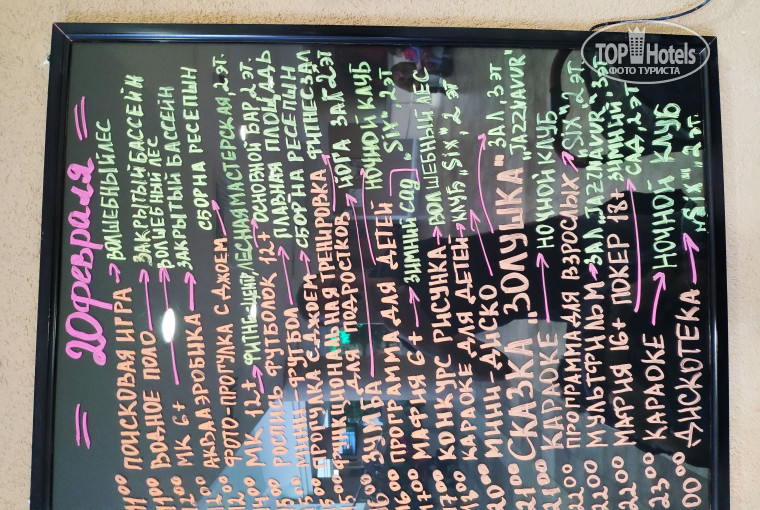 TOP Hotels
ФОТО ТУРИСТА
= 20 февраля =
11 00 ПОИСКОВАЯ ИГРА → ВОЛШЕБНЫЙ ЛЕС
11 00 ВОДНОЕ ПОЛО → ЗАКРЫТЫЙ БАССЕЙН
МК 6+ → ВОЛШЕБНЫЙ ЛЕС
12 АКВААЭРОБИКА → ЗАКРЫТЫЙ БАССЕЙН
12 ФОТО-ПРОГУЛКА С ДЖОЕМ → СБОР НА РЕСЕПШН
МК 12+ → ФИТНЕС-ЦЕНТР, ЛЕСНАЯ МАСТЕРСКАЯ, 2 ЭТ.
РОСПИСЬ ФУТБОЛОК 12+ → ОСНОВНОЙ БАР, 2 ЭТ.
МИНИ-ФУТБОЛ → ГЛАВНАЯ ПЛОЩАДЬ
ПРОГУЛКА С ДЖОЕМ → СБОР НА РЕСЕПШН
ФУНКЦИОНАЛЬНАЯ ТРЕНИРОВКА ФИТНЕС ЗАЛ
ДЛЯ ПОДРОСТКОВ
16 ЗУМБА → ЙОГА ЗАЛ 2 ЭТ
16 00 ПРОГРАММА ДЛЯ ДЕТЕЙ → НОЧНОЙ КЛУБ "SIX", 2 ЭТ
17 00 МАФИЯ 6+ → ЗИМНИЙ САД
17 00 КОНКУРС РИСУНКА → ВОЛШЕБНЫЙ ЛЕС
КАРАОКЕ ДЛЯ ДЕТЕЙ → КЛУБ "SIX", 2 ЭТ
20 00 МИНИ-ДИСКО
21 00 СКАЗКА "ЗОЛУШКА" ЗАЛ, 3 ЭТ "JAZZNAVUR"
21 00 КАРАОКЕ → НОЧНОЙ КЛУБ
22 00 ПРОГРАММА ДЛЯ ВЗРОСЛЫХ → "SIX", 2 ЭТ.
22 00 МУЛЬТФИЛЬМ → ЗАЛ "JAZZNAVUR", 3 ЭТ
22 00 МАФИЯ 16+ ПОКЕР 18+ ЗИМНИЙ САД, 2 ЭТ
23 00 КАРАОКЕ → НОЧНОЙ КЛУБ
00 00 ДИСКОТЕКА → "SIX", 2 ЭТ.